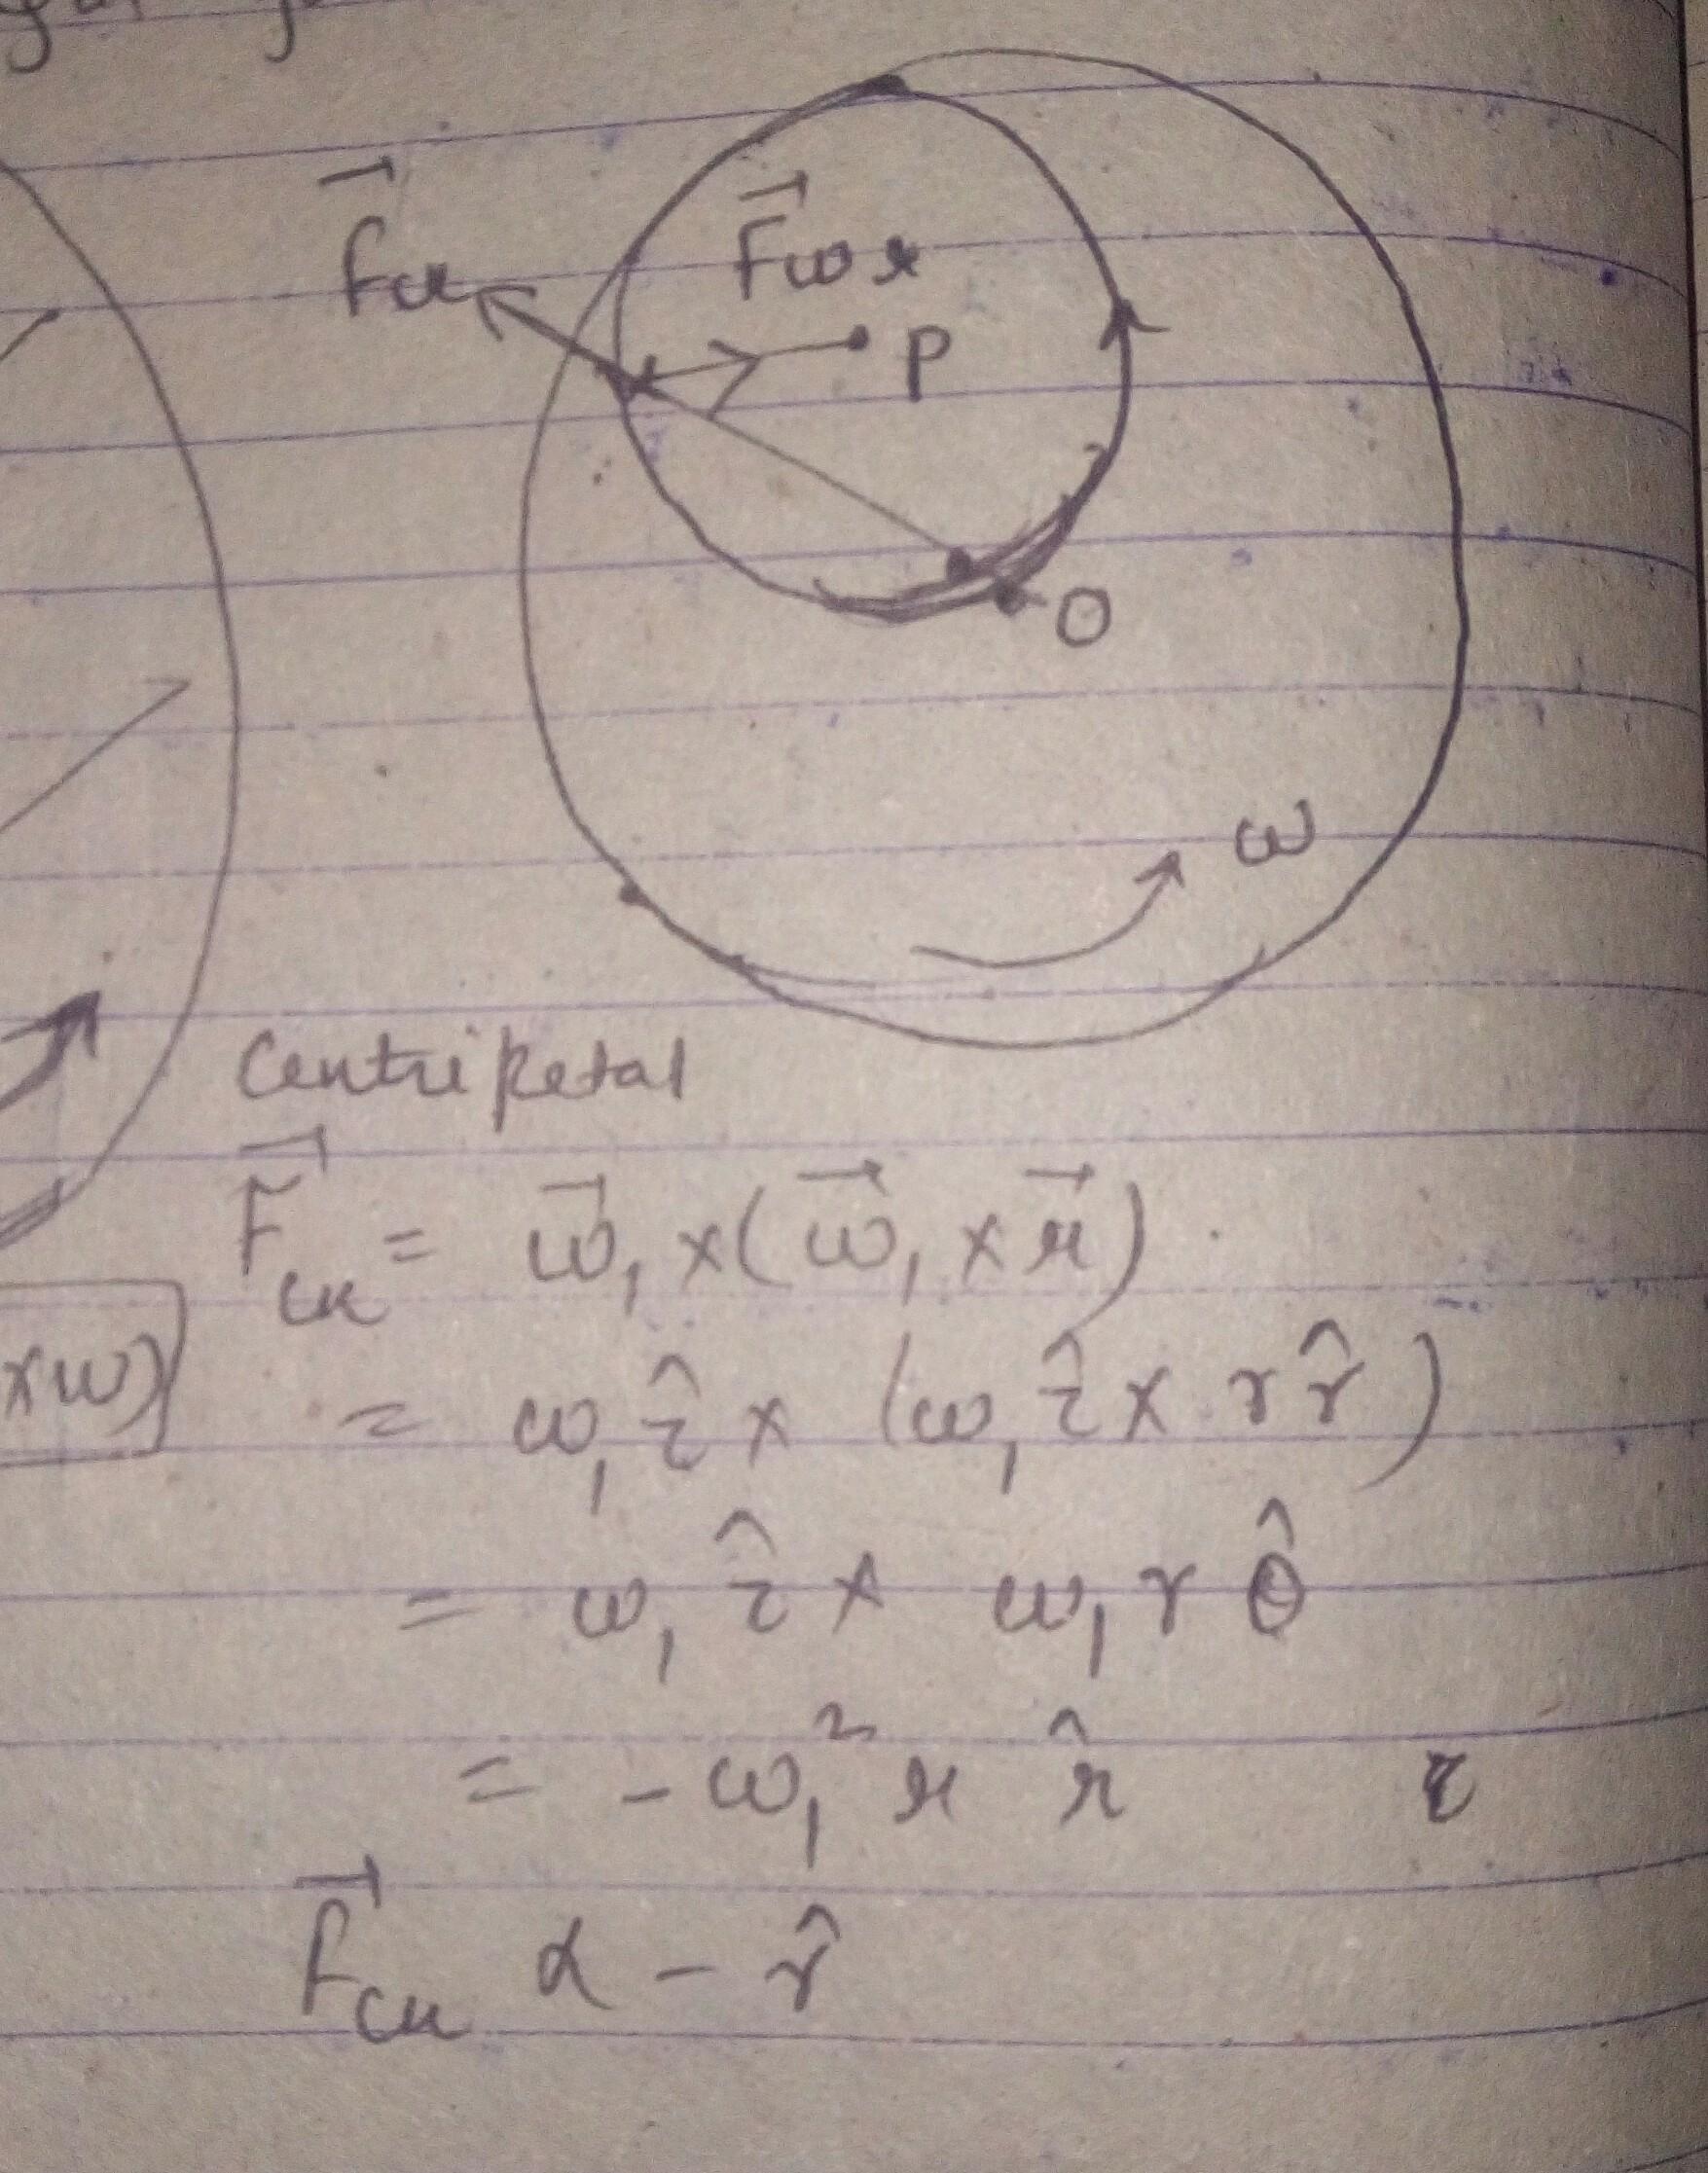 F⃗cr
F⃗cor
P
O
ω
Centripetal
F⃗cr = ω⃗₁ × (ω⃗₁ × r⃗)
×ω)
= ω₁ẑ × (ω₁ẑ × r r̂)
= ω₁ẑ × ω₁ r θ̂
= -ω₁² r r̂
F⃗cr α - r̂